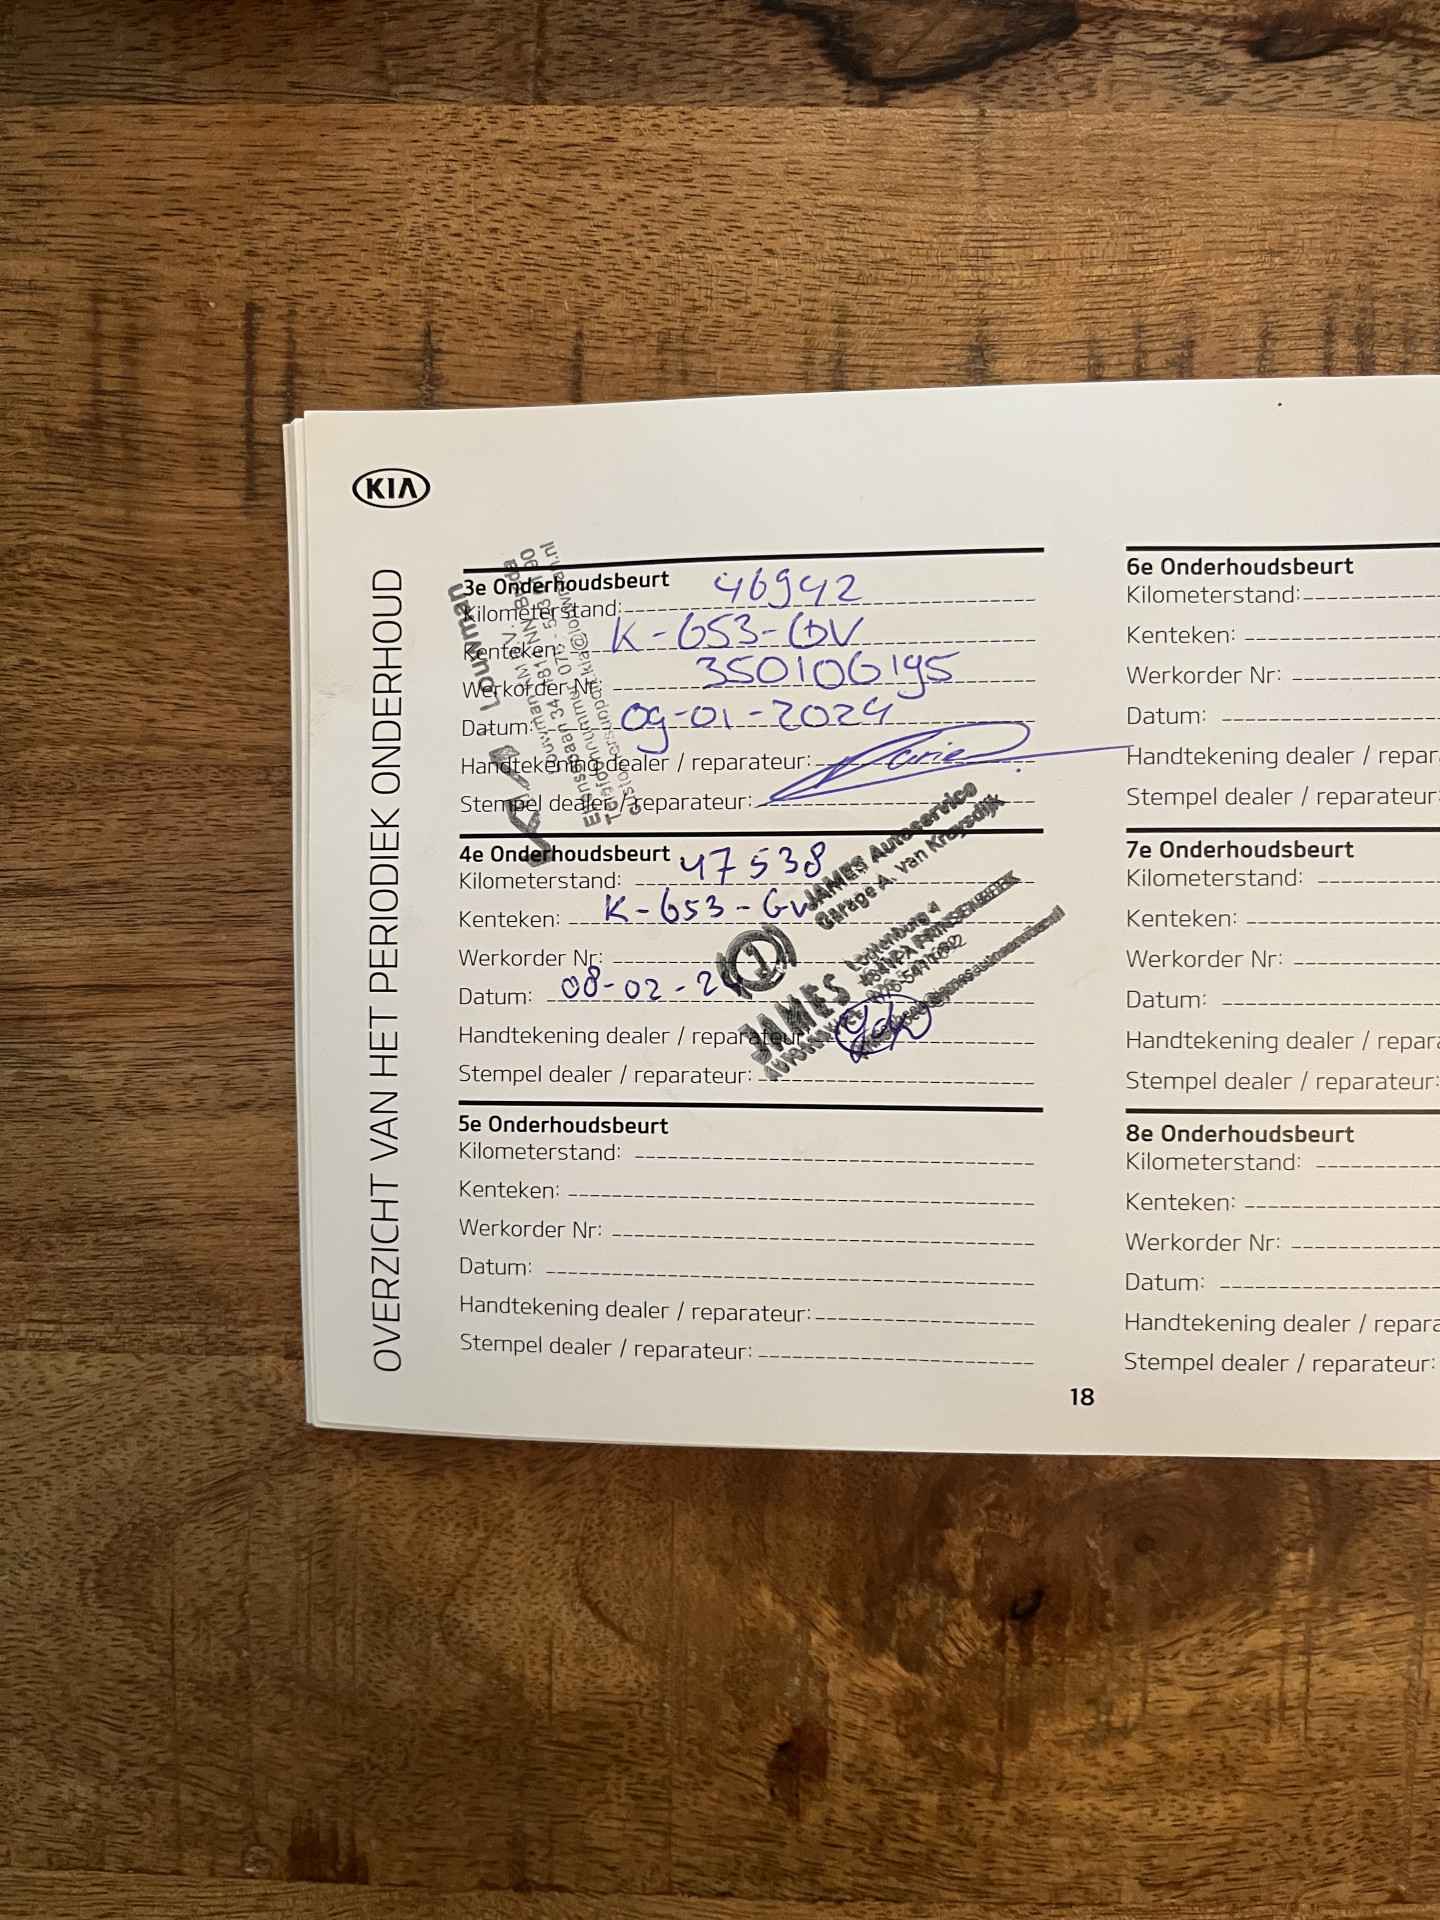 KIA
OVERZICHT VAN HET PERIODIEK ONDERHOUD
3e Onderhoudsbeurt
Kilometerstand: 46942
Kenteken: K-653-GV
Werkorder Nr: 350106195
Datum: 09-01-2024
Handtekening dealer / reparateur:
Stempel dealer / reparateur:
Louwman
4e Onderhoudsbeurt
Kilometerstand: 47538
Kenteken: K-653-GV
Werkorder Nr:
Datum: 08-02-2
Handtekening dealer / reparateur
Stempel dealer / reparateur:
JAMES Autoservice
Garage A. van Kruysdijk
JAMES
5e Onderhoudsbeurt
Kilometerstand:
Kenteken:
Werkorder Nr:
Datum:
Handtekening dealer / reparateur:
Stempel dealer / reparateur:
6e Onderhoudsbeurt
Kilometerstand:
Kenteken:
Werkorder Nr:
Datum:
Handtekening dealer / repar
Stempel dealer / reparateur:
7e Onderhoudsbeurt
Kilometerstand:
Kenteken:
Werkorder Nr:
Datum:
Handtekening dealer / repara
Stempel dealer / reparateur:
8e Onderhoudsbeurt
Kilometerstand:
Kenteken:
Werkorder Nr:
Datum:
Handtekening dealer / repara
Stempel dealer / reparateur:
18